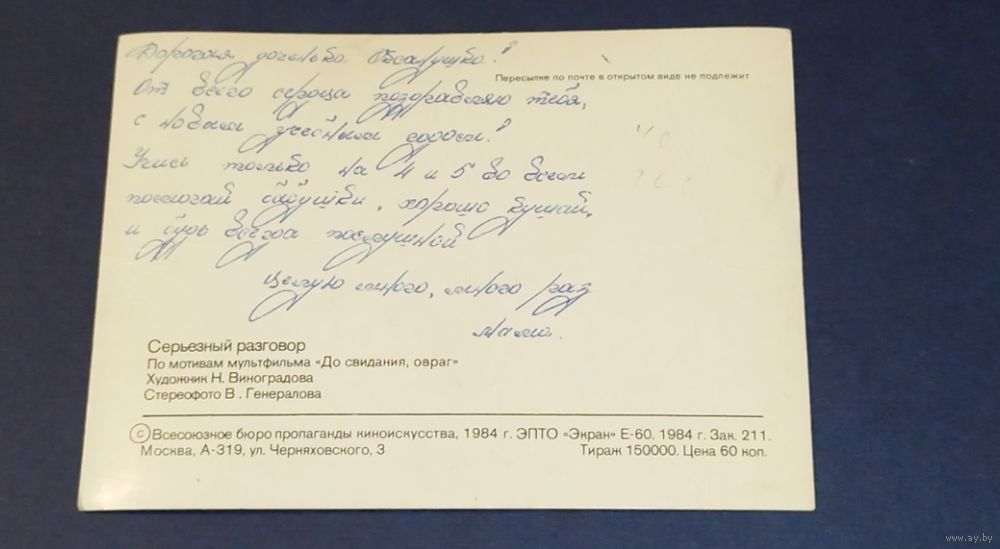 Дорогая доченька Оксанушка!
Пересылке по почте в открытом виде не подлежит
От всего сердца поздравляю тебя,
с новым учебным годом!
Учись только на 4 и 5 во всем
помогай бабушки, хорошо кушай,
и будь всегда послушной
Целую много, много раз
мама.
Серьезный разговор
По мотивам мультфильма «До свидания, овраг»
Художник Н. Виноградова
Стереофото В. Генералова
© Всесоюзное бюро пропаганды киноискусства, 1984 г. ЭПТО «Экран» Е-60. 1984 г. Зак. 211.
Москва, А-319, ул. Черняховского, 3 Тираж 150000. Цена 60 коп.
www.ay.by